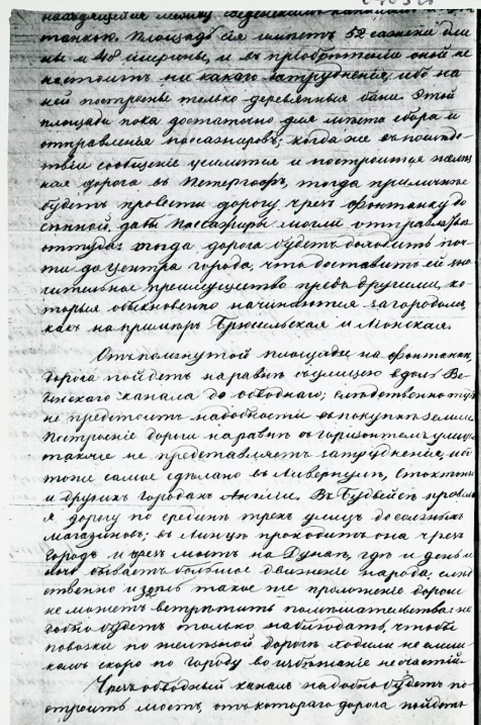 находящейся между Введенским каналом и Фон-
танкою. Площадь сія имѣетъ 52 сажени дли
ны и 48 ширины, и въ пріобрѣтеніи оной не
настоитъ ни какого затрудненія, ибо на
ней построены только деревянныя бани. Этой
площади пока достаточно для мѣста сбора и
отправленія пассажировъ; когда же въ послѣд-
ствіи сообщеніе усилится и построится желѣз
ная дорога въ Петергофъ, тогда приличнѣе
будетъ провести дорогу чрезъ Фонтанку до
Сѣнной, дабы пассажиры могли отправляться
оттуда: тогда дорога будетъ доходить поч
ти до центра города, что доставитъ ей зна
чительное преимущество предъ другими, ко
торыя обыкновенно начинаются за городомъ,
какъ на примѣръ Брюсельская и Лионская.
Отъ помянутой площади на Фонтанкѣ,
дорога пойдетъ на равнѣ съ улицею вдоль Вве-
денскаго канала до обводнаго; слѣдственно тутъ
не предстоитъ надобности въ покупкѣ земли.
Построеніе дороги на равнѣ съ горизонтомъ улицы
также не представляетъ затрудненія, ибо
тоже самое сдѣлано въ Ливерпулѣ, Стоктонѣ
и другихъ городахъ Англіи. Въ Будвейсѣ провелъ
я дорогу по срединѣ трехъ улицъ до соляныхъ
магазиновъ; въ Линцѣ проходитъ она чрезъ
городъ и чрезъ мостъ на Дунаѣ, гдѣ и день и
ночь бываетъ большое движеніе народа; слѣд
ственно и здѣсь такое же проложеніе дороги
не можетъ встрѣтить помѣшательства: на
добно будетъ только наблюдать, чтобъ
повозки по желѣзной дорогѣ ходили не слиш
комъ скоро по городу во избѣжаніе несчастій.
Чрезъ обводный каналъ надобно будетъ по
строить мостъ, отъ котораго дорога пойдетъ